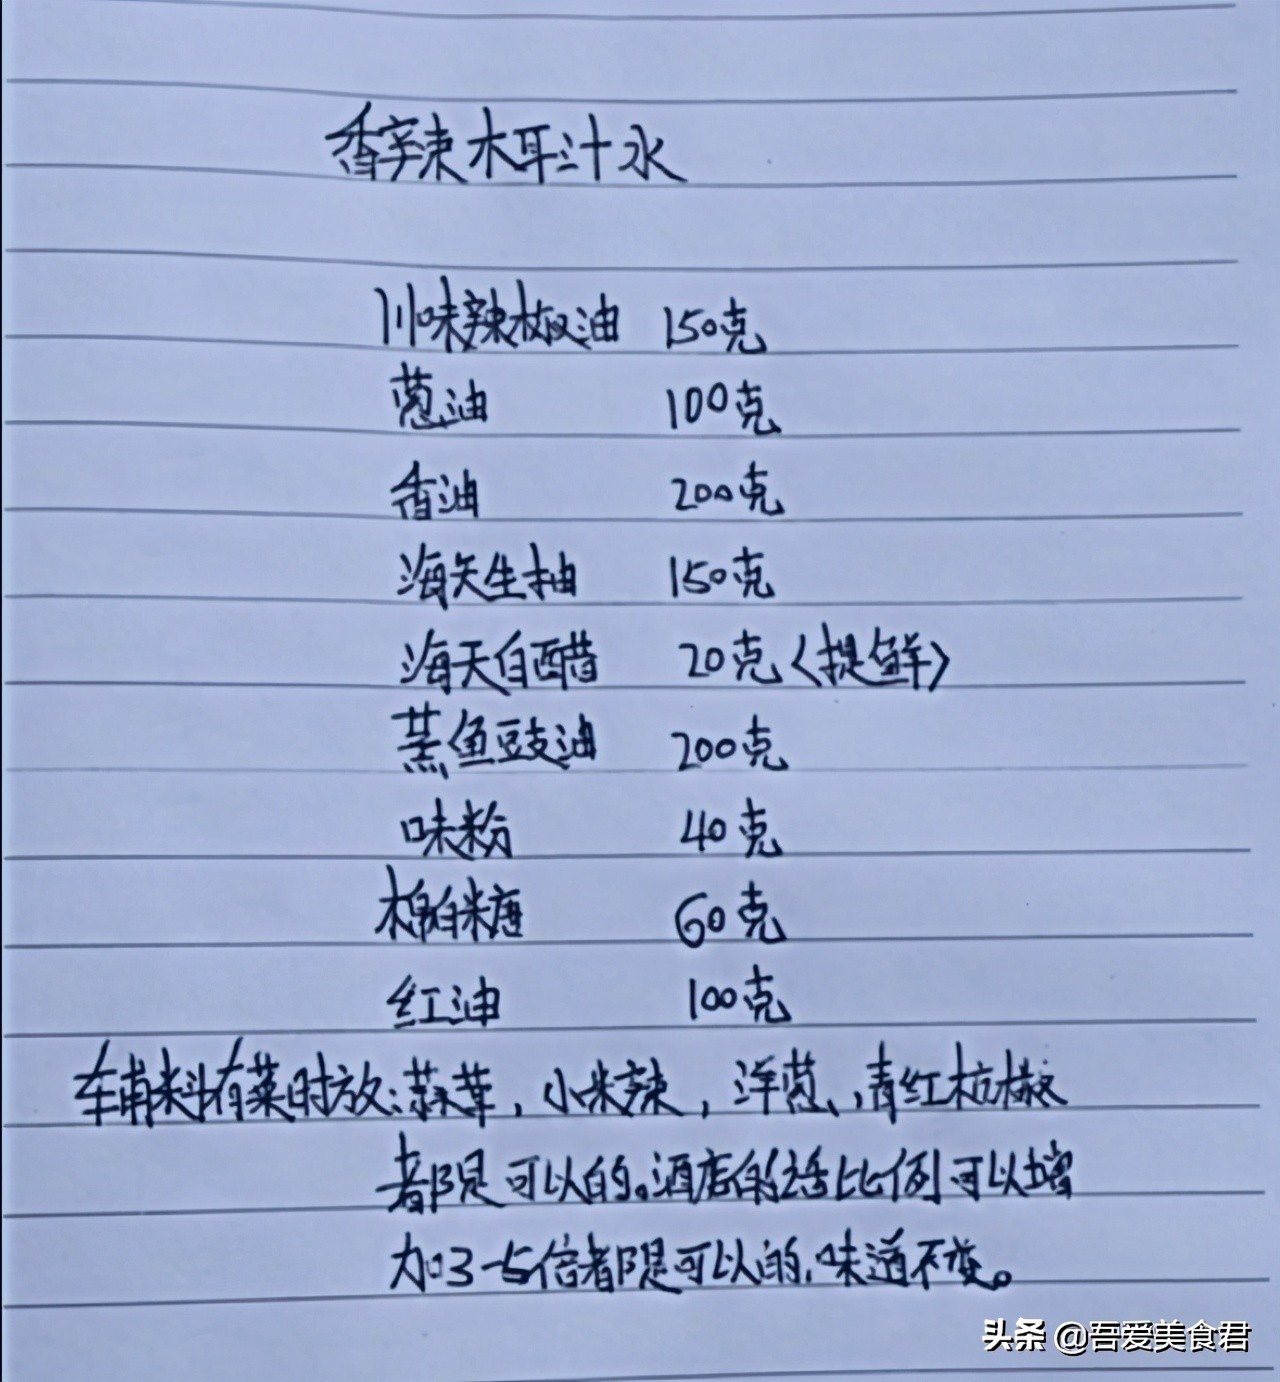 香辣木耳汁水
川味辣椒油 150克
葱油 100克
香油 200克
海天生抽 150克
海天白醋 20克〈提鲜〉
蒸鱼豆豉油 200克
味粉 40克
棉白糖 60克
红油 100克
辅料有菜时放:蒜茸,小米辣,洋葱,青红杭椒
都是可以的。酒店的话比例可以增
加3-5倍都是可以的,味道不变。
头条 @吾爱美食君